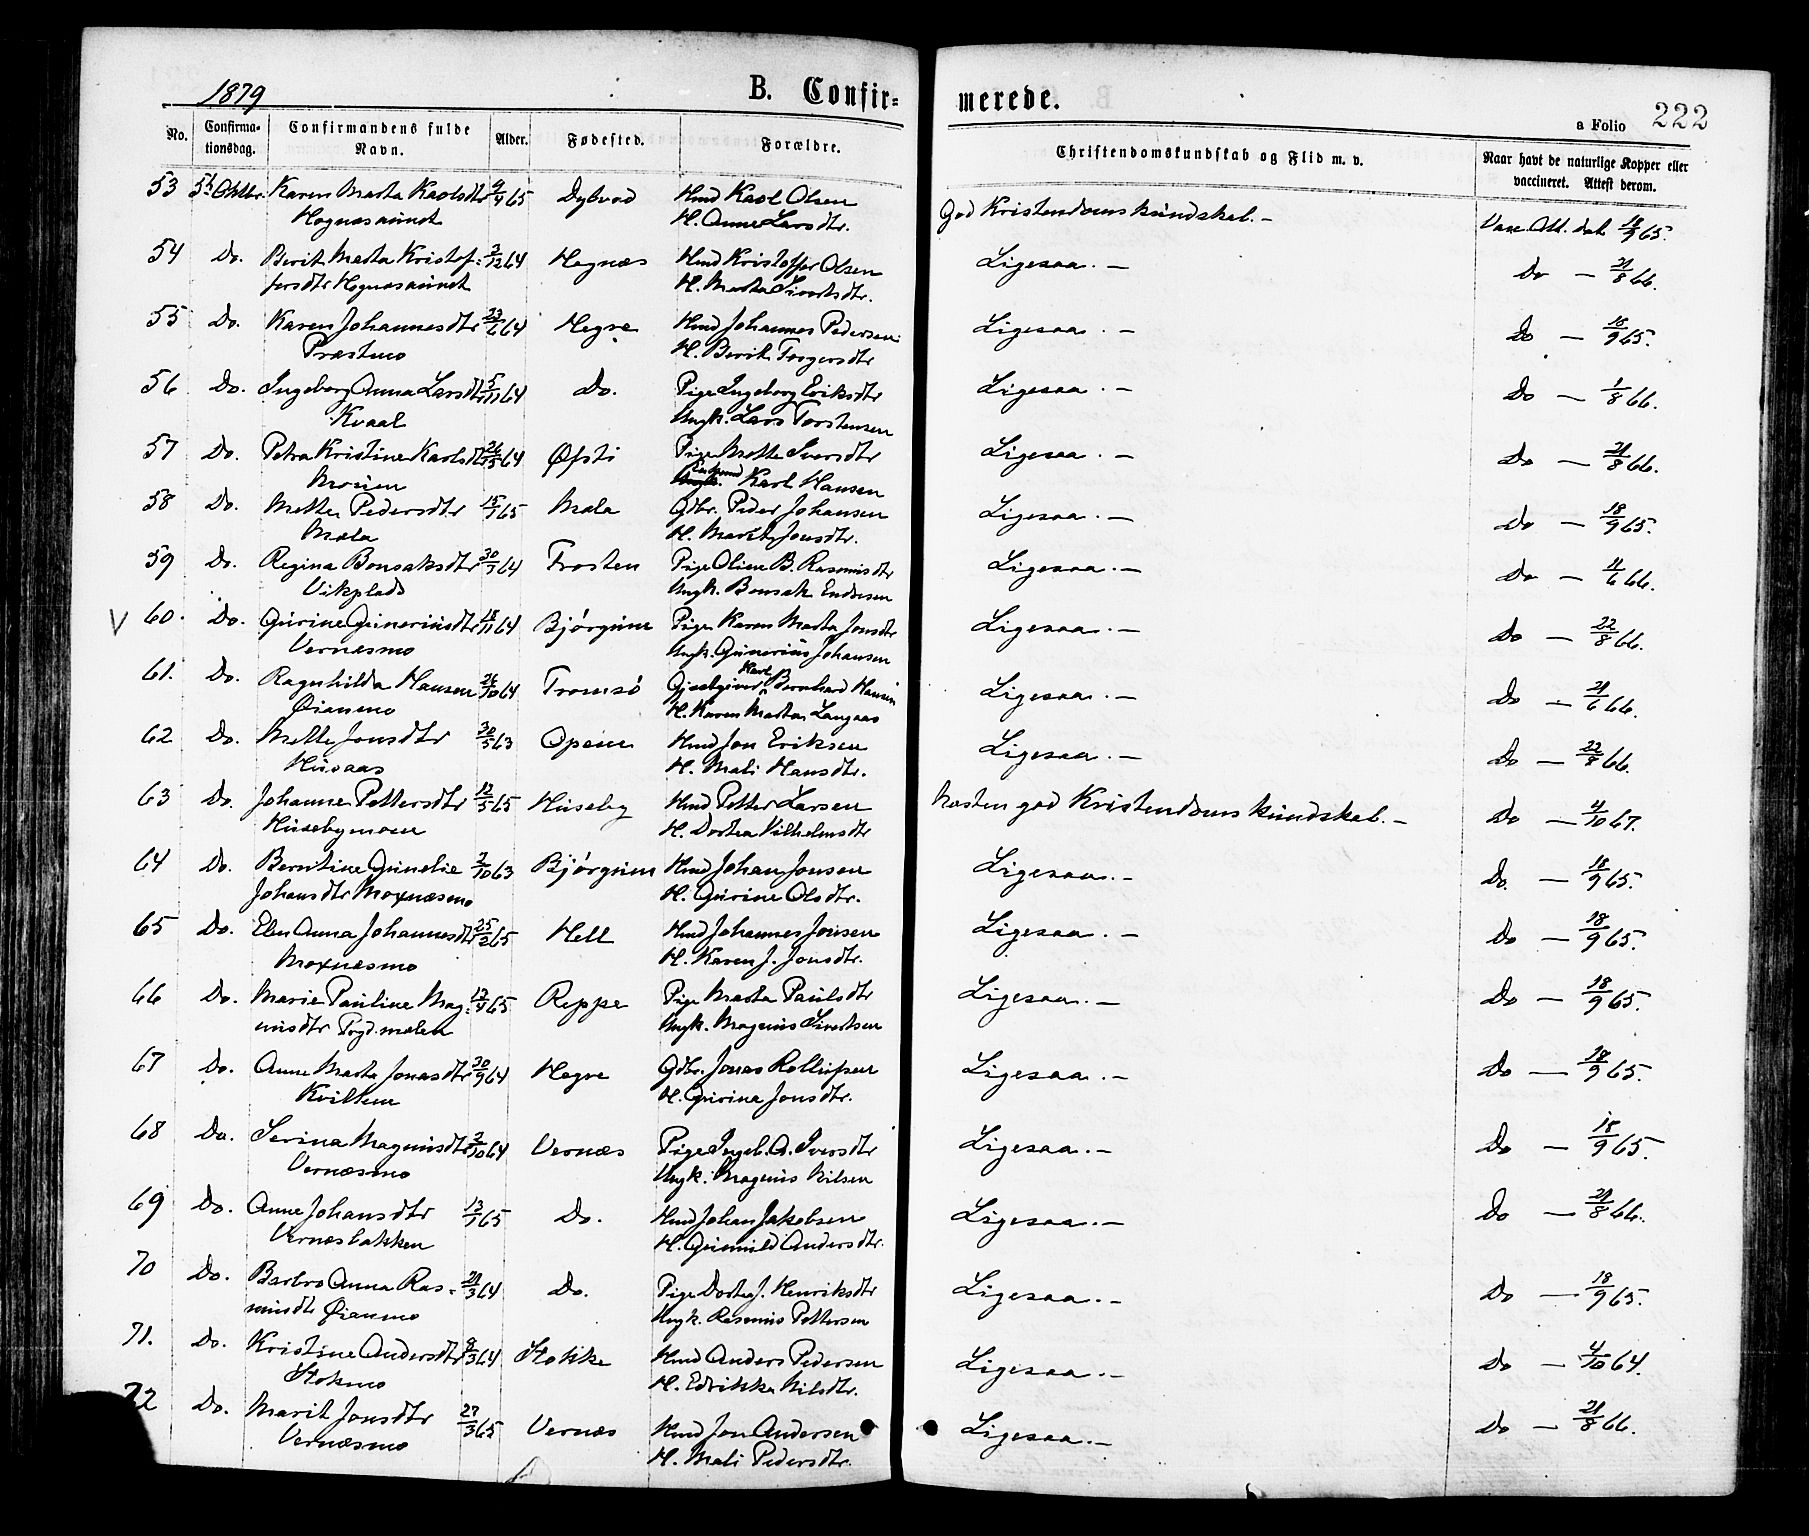 1879
B. Confirmerede.
a Folio 222
No. Confirmationsdag. Confirmandens fulde Navn. Alder. Fødested. Forældre. Christendomskundskab og Flid m. v. Naar havt de naturlige Kopper eller vaccineret. Attest derom.
53 5te Oktbr. Karen Marta Karlsdtr 9/4 65 Dybvad Hmd Karl Olsen God Kristendomskundskab. — Vacc. Att. dat. 18/9 65.
Hognæsaunet H. Anne Larsdtr.
54 Do. Berit Marta Kristof- 2/12 64 Hognæs Hmd Kristoffer Olsen Ligesaa. — Do — 21/8 66.
fersdtr Hognæsaunet H. Marta Sivertsdtr.
55 Do. Karen Johannesdtr 23/6 64 Hegre Hmd Johannes Pedersen Ligesaa. — Do — 18/9 65.
Præstmo H. Berit Torgersdtr
56 Do. Ingeborg Anna Larsdtr 5/11 64 Do. Pige Ingeborg Eriksdtr Ligesaa. — Do — 1/8 66.
Kvaal Ungk. Lars Torstensen
57 Do. Petra Kristine Karlsdtr 26/5 64 Øfsti Pige Mette Iversdtr Ligesaa. — Do — 21/8 66.
Moen Enkemd Karl Hansen
58 Do. Mette Pedersdtr 15/1 65 Mæla Gdbr. Peder Johansen Ligesaa. — Do — 18/9 65.
Mæla H. Marit Jonsdtr.
59 Do. Regina Bonsaksdtr 30/7 64 Frosten Pige Oline B. Rasmusdtr Ligesaa. — Do — 11/6 66.
Vikplads Ungk. Bonsak Endresen
V 60. Do. Gurine Guneriusdtr 18/11 64 Bjørgum Pige Karen Marta Jonsdtr Ligesaa. — Do — 22/8 66.
Vernæsmo Ungk. Gunerius Johansen
61. Do. Ragnhilda Hansen 26/10 64 Tromsø Gjæstgiver Karl Bernhard Hansen Ligesaa. — Do — 21/6 66.
Øianmo H. Karen Marta Langaas
62 Do. Mette Jonsdtr 30/5 63 Opem Hmd Jon Eriksen Ligesaa. — Do — 22/8 66.
Husaas H. Mali Hansdtr.
63 Do. Johanne Pettersdtr 12/5 65 Huseby Hmd Petter Larsen Næsten god Kristendomskundskab. — Do — 4/10 67.
Husebymoen H. Dortea Vilhelmsdtr
64 Do. Berntine Gunelie 2/10 63 Bjørgum Hmd Johan Jonsen Ligesaa. — Do. — 18/9 65.
Johansdtr Moxnæsmo H. Gurine Olsdtr.
65 Do. Elen Anna Johannesdtr 25/2 65 Hell Hmd Johannes Jonsen Ligesaa. — Do — 18/9 65.
Moxnæsmo H. Karen J. Jonsdtr.
66 Do. Marie Pauline Mag- 12/4 65 Reppe Pige Marta Paulsdtr Ligesaa. — Do — 18/9 65.
nusdtr Prgd.molen Ungk. Magnus Sivertsen
67 Do. Anne Marta Jonasdtr 30/9 64 Hegre Gdbr. Jonas Rollaufsen Ligesaa. — Do — 18/9 65.
Kvilhem H. Gurina Jonsdtr.
68 Do. Serina Magnusdtr 2/10 64 Vernæs Pige Ingeb. A. Iversdtr Ligesaa. — Do — 18/9 65.
Vernæsmo Ungk. Magnus Nilsen
69 Do. Anne Johansdtr 12/1 65 Do. Hmd Johan Jakobsen Ligesaa. — Do — 21/8 66.
Vernæsbakken H. Gunnild Andersdtr.
70 Do. Barbro Anna Ras- 21/3 64 Do. Pige Dortea J. Henriksdtr Ligesaa. — Do — 18/9 65.
musdtr Øianmo Ungk. Rasmus Pettersen
71. Do. Kristine Andersdtr 9/3 64 Stokke Hmd Anders Pedersen Ligesaa. — Do — 4/10 64.
Stokmo H. Edrikka Nilsdtr.
72 Do. Marit Jonsdtr 27/3 65 Vernæs Hmd Jon Andersen Ligesaa. — Do — 21/8 66.
Vernæsmo H. Mali Pedersdtr.